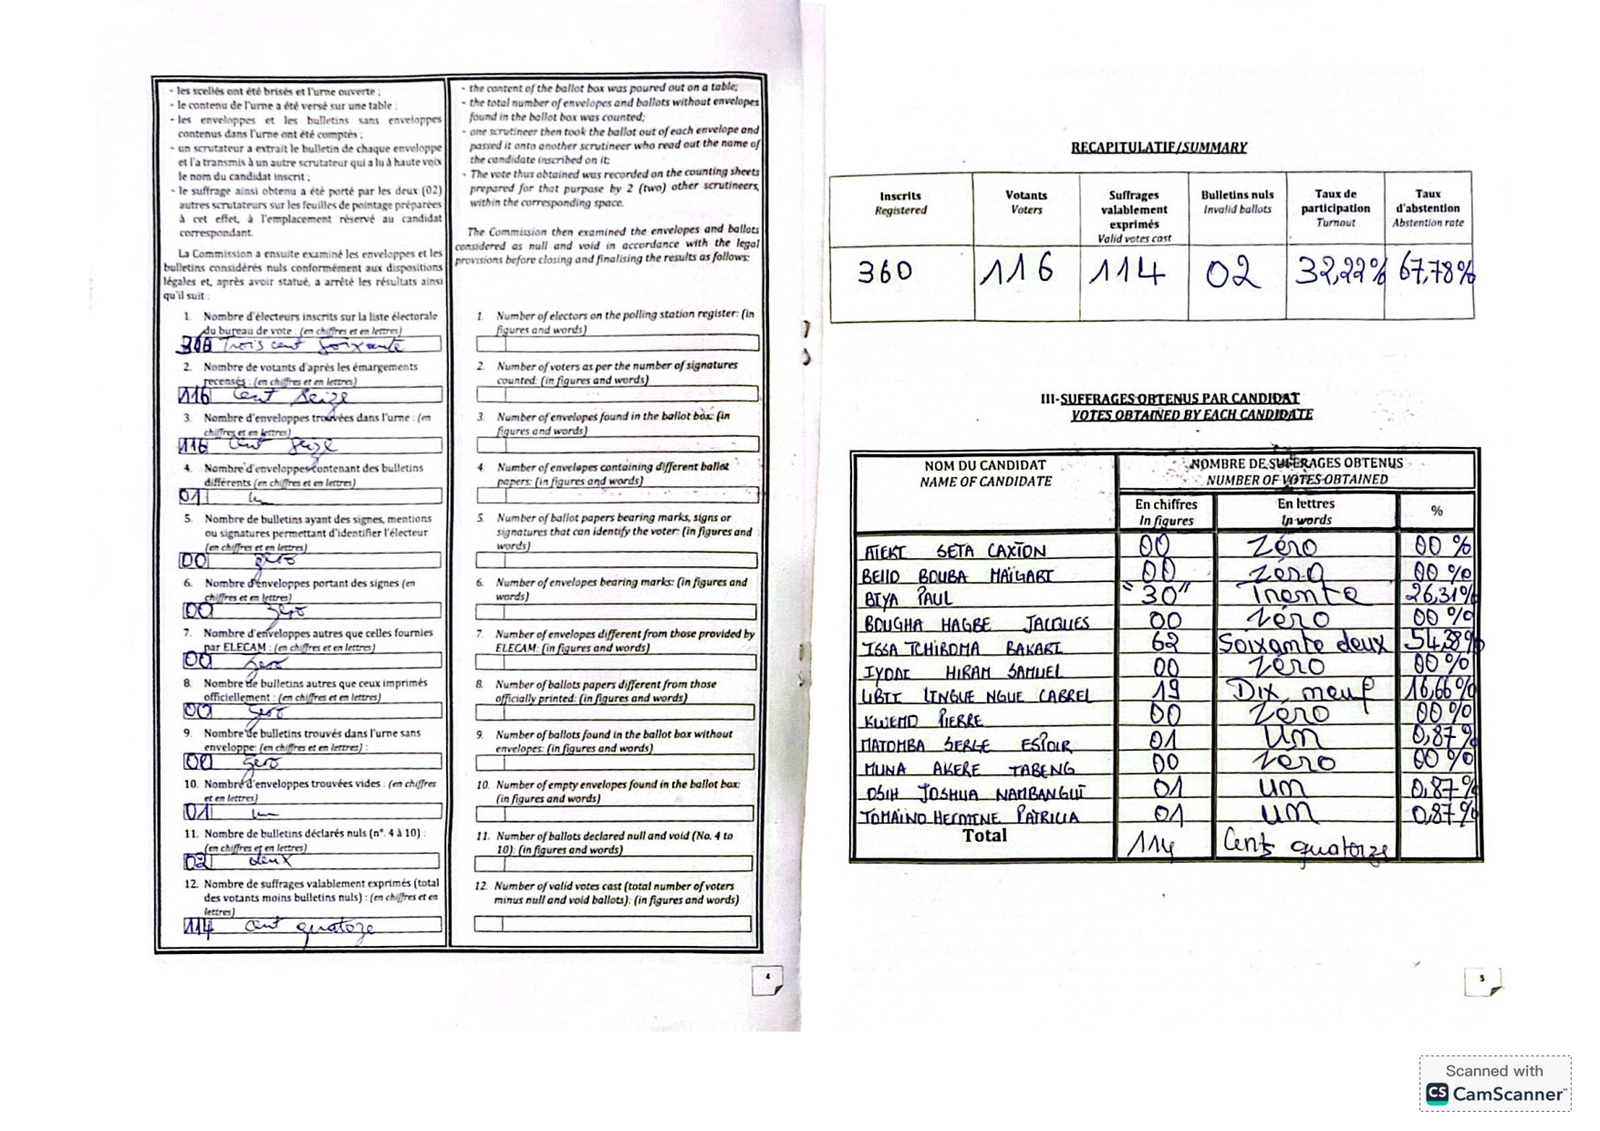 - les scellés ont été brisés et l'urne ouverte ;
- le contenu de l'urne a été versé sur une table ;
- les enveloppes et les bulletins sans enveloppes
contenus dans l'urne ont été comptés ;
- un scrutateur a extrait le bulletin de chaque enveloppe
et l'a transmis à un autre scrutateur qui a lu à haute voix
le nom du candidat inscrit ;
- le suffrage ainsi obtenu a été porté par les deux (02)
autres scrutateurs sur les feuilles de pointage préparées
à cet effet, à l'emplacement réservé au candidat
correspondant.
La Commission a ensuite examiné les enveloppes et les
bulletins considérés nuls conformément aux dispositions
légales et, après avoir statué, a arrêté les résultats ainsi
qu'il suit :
1. Nombre d'électeurs inscrits sur la liste électorale
du bureau de vote : (en chiffres et en lettres)
Trois cent soixante
2. Nombre de votants d'après les émargements
recensés : (en chiffres et en lettres)
116 cent seize
3. Nombre d'enveloppes trouvées dans l'urne : (en
chiffres et en lettres)
116 cent seize
4. Nombre d'enveloppes contenant des bulletins
différents (en chiffres et en lettres)
01 un
5. Nombre de bulletins ayant des signes, mentions
ou signatures permettant d'identifier l'électeur
(en chiffres et en lettres)
00 zéro
6. Nombre d'enveloppes portant des signes (en
chiffres et en lettres)
00 zéro
7. Nombre d'enveloppes autres que celles fournies
par ELECAM : (en chiffres et en lettres)
00 zéro
8. Nombre de bulletins autres que ceux imprimés
officiellement : (en chiffres et en lettres)
00 zéro
9. Nombre de bulletins trouvés dans l'urne sans
enveloppe: (en chiffres et en lettres) :
00 zéro
10. Nombre d'enveloppes trouvées vides : (en chiffres
et en lettres)
01 un
11. Nombre de bulletins déclarés nuls (n°. 4 à 10) :
(en chiffres et en lettres)
02 deux
12. Nombre de suffrages valablement exprimés (total
des votants moins bulletins nuls) : (en chiffres et en
lettres)
114 cent quatoze
- the content of the ballot box was poured out on a table;
- the total number of envelopes and ballots without envelopes
found in the ballot box was counted;
- one scrutineer then took the ballot out of each envelope and
passed it onto another scrutineer who read out the name of
the candidate inscribed on it;
- The vote thus obtained was recorded on the counting sheets
prepared for that purpose by 2 (two) other scrutineers,
within the corresponding space.
The Commission then examined the envelopes and ballots
considered as null and void in accordance with the legal
provisions before closing and finalising the results as follows:
1. Number of electors on the polling station register: (in
figures and words)
2. Number of voters as per the number of signatures
counted: (in figures and words)
3. Number of envelopes found in the ballot box: (in
figures and words)
4. Number of envelopes containing different ballot
papers: (in figures and words)
5. Number of ballot papers bearing marks, signs or
signatures that can identify the voter: (in figures and
words)
6. Number of envelopes bearing marks: (in figures and
words)
7. Number of envelopes different from those provided by
ELECAM: (in figures and words)
8. Number of ballots papers different from those
officially printed: (in figures and words)
9. Number of ballots found in the ballot box without
envelopes: (in figures and words)
10. Number of empty envelopes found in the ballot box:
(in figures and words)
11. Number of ballots declared null and void (No. 4 to
10): (in figures and words)
12. Number of valid votes cast (total number of voters
minus null and void ballots): (in figures and words)
4
RECAPITULATIF/SUMMARY
Inscrits Registered Votants Voters Suffrages valablement exprimés Valid votes cast Bulletins nuls Invalid ballots Taux de participation Turnout Taux d'abstention Abstention rate
360 116 114 02 32,22% 67,78%
III-SUFFRAGES OBTENUS PAR CANDIDAT
VOTES OBTAINED BY EACH CANDIDATE
NOM DU CANDIDAT NOMBRE DE SUFFRAGES OBTENUS
NAME OF CANDIDATE NUMBER OF VOTES OBTAINED
En chiffres En lettres %
In figures In words
ATEKI SETA CAXTON 00 Zéro 00 %
BELLO BOUBA MAÏGARI 00 zéro 00 %
BIYA PAUL "30" Trente 26,31%
BOUGHA HAGBE JACQUES 00 Zéro 00 %
ISSA TCHIROMA BAKARI 62 Soixante deux 54,38%
IYODI HIRAM SAMUEL 00 Zéro 00 %
LIBII LINGUE NGUE CABREL 19 Dix neuf 16,66%
KWEMO PIERRE 00 Zéro 00 %
MATOMBA SERGE ESPOIR 01 Um 0,87%
MUNA AKERE TABENG 00 Zéro 00 %
OSIH JOSHUA NAMBANGUI 01 um 0,87%
TOMAINO HERMINE PATRICIA 01 um 0,87%
Total 114 Cent quatorze
5
Scanned with
CS CamScanner